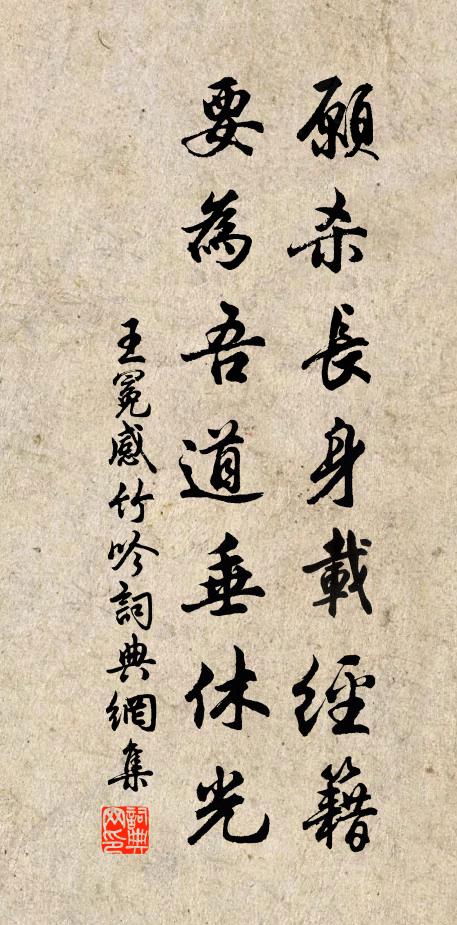 願杀長身載經籍
要為吾道垂休光
王冕感竹吟詞典網集
詞典网印